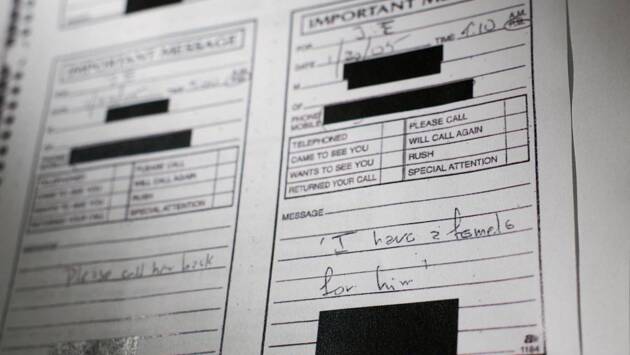 IMPORTANT MESSAGE
FOR J.E
DATE TIME
M
OF
PHONE
MOBILE
TELEPHONED PLEASE CALL
CAME TO SEE YOU WILL CALL AGAIN
WANTS TO SEE YOU RUSH
RETURNED YOUR CALL SPECIAL ATTENTION
MESSAGE
Please call her back
IMPORTANT
FOR J.E
DATE 1/20/05 TIME 1:10 A.M. P.M.
M
OF
PHONE
MOBILE
TELEPHONED PLEASE CALL
CAME TO SEE YOU WILL CALL AGAIN
WANTS TO SEE YOU RUSH
RETURNED YOUR CALL SPECIAL ATTENTION
MESSAGE
'I have a female
for him'
1184